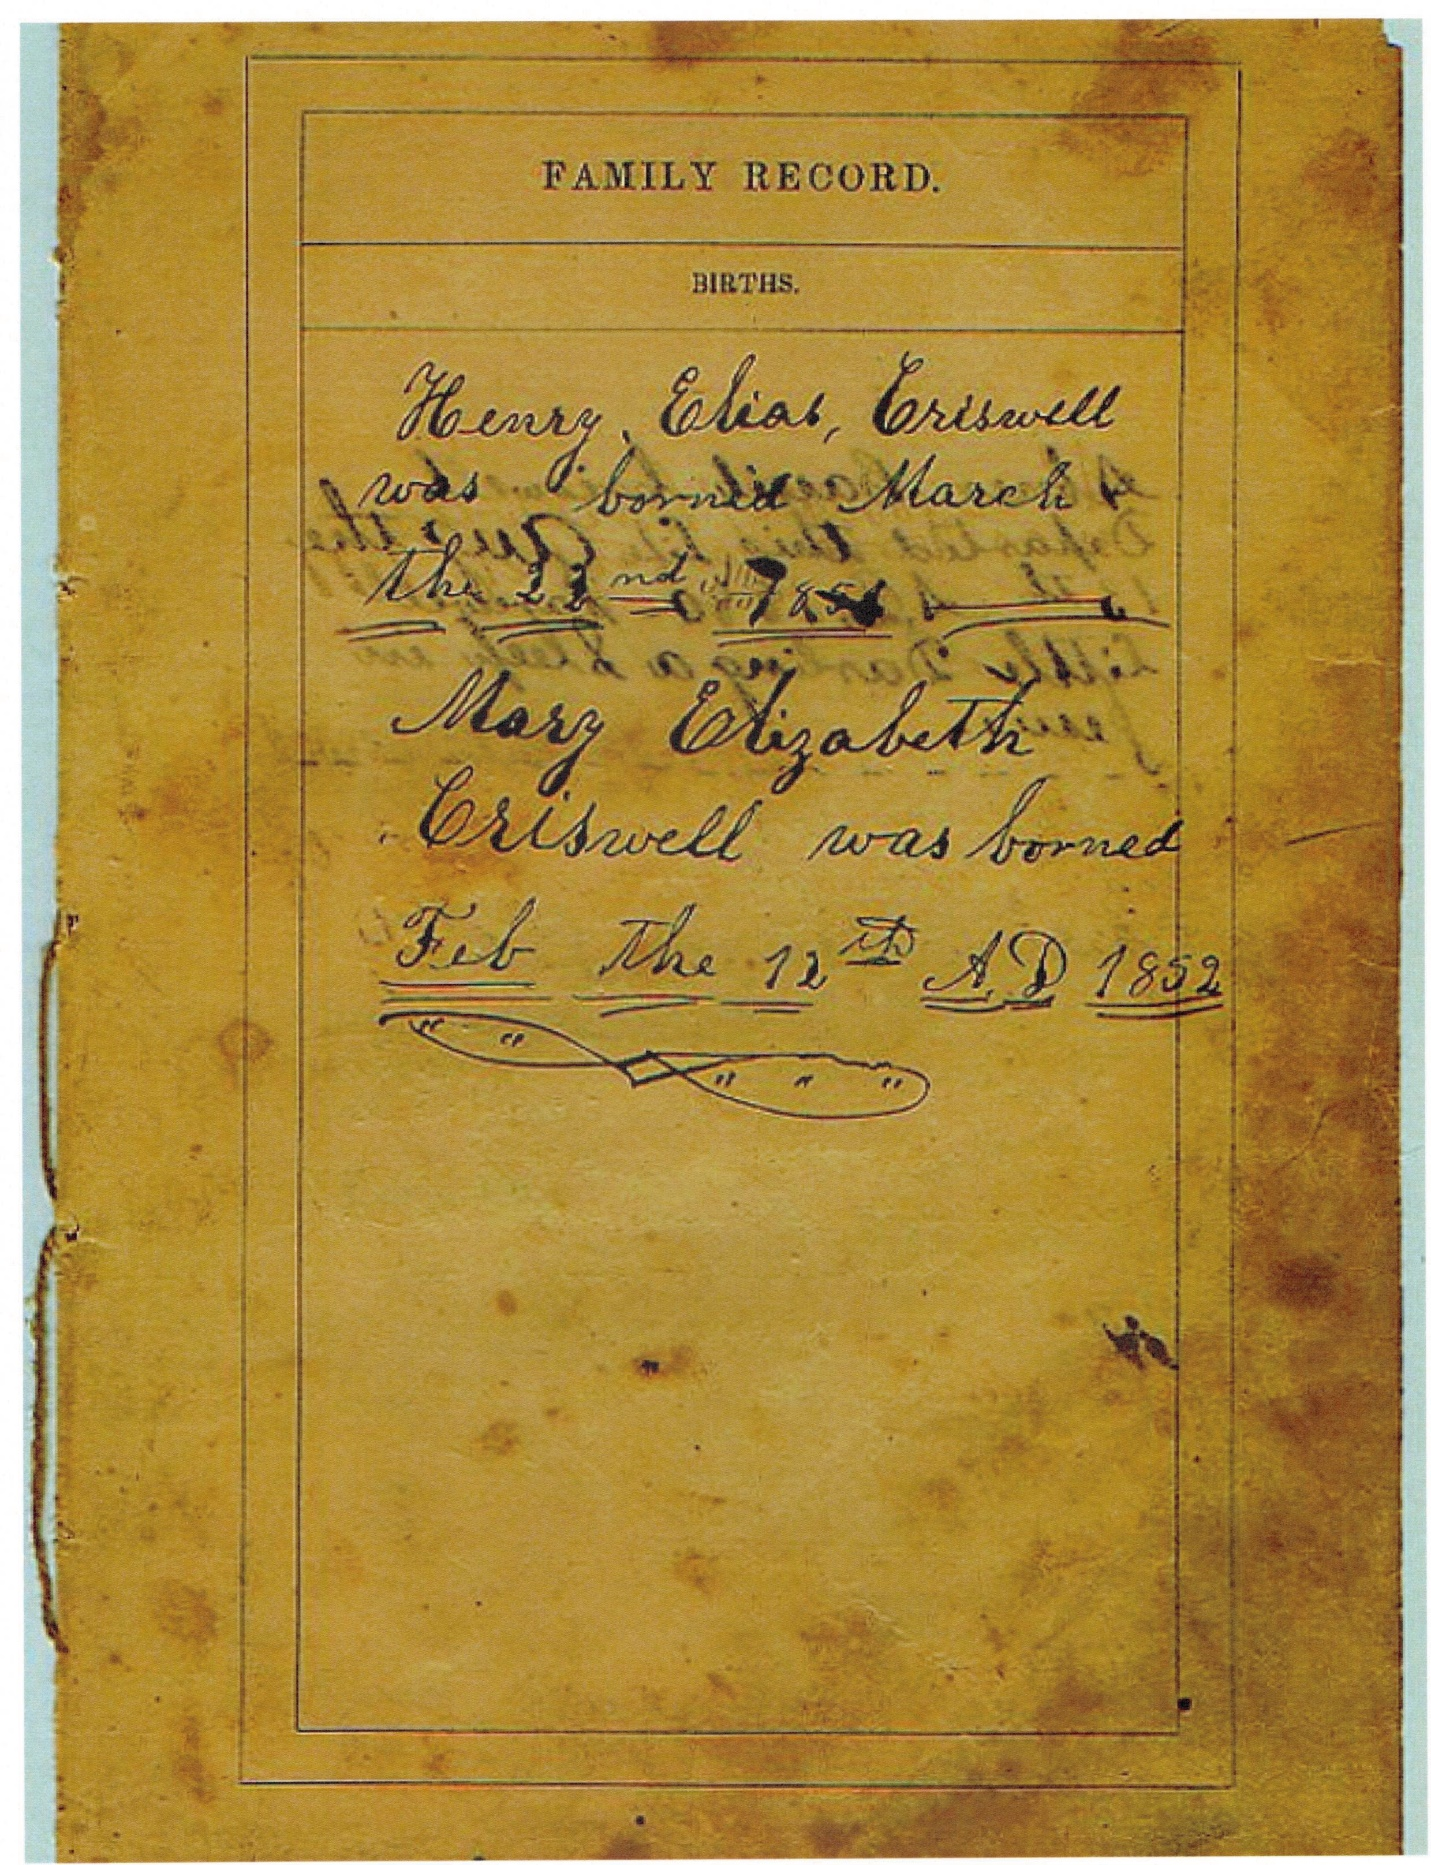 FAMILY RECORD.
BIRTHS.
Henry, Elias, Criswell
was borned March
the 22nd
Mary Elizabeth
Criswell was borned
Feb the 12th A.D 1852